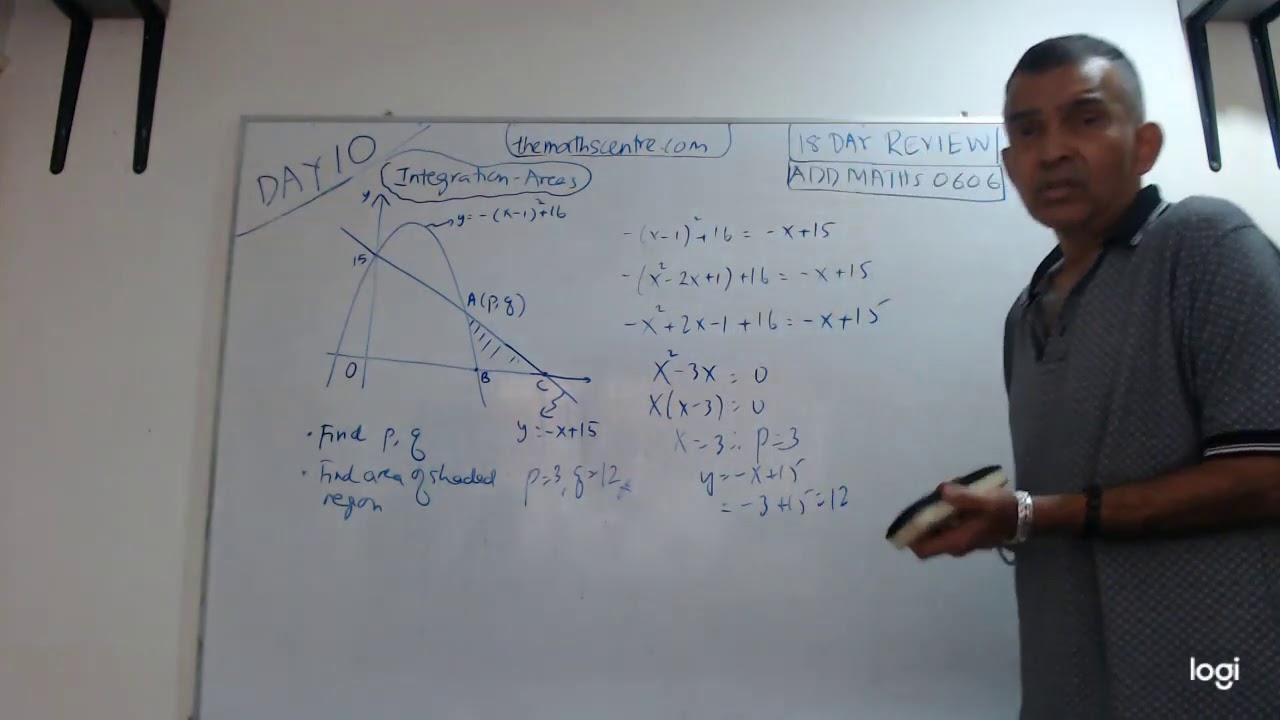 DAY 10
themathscentre.com
18 DAY REVIEW
ADD MATHS 0606
Integration-Areas
y
y=-(x-1)²+16
15
A(p,q)
O
B
C
y=-x+15
• Find p, q
• Find area of shaded
region
p=3, q=12
-(x-1)²+16 = -x+15
-(x²-2x+1)+16 = -x+15
-x²+2x-1+16 = -x+15
x²-3x = 0
x(x-3) = 0
x=3 ∴ p=3
y=-x+15
= -3+15=12
logi